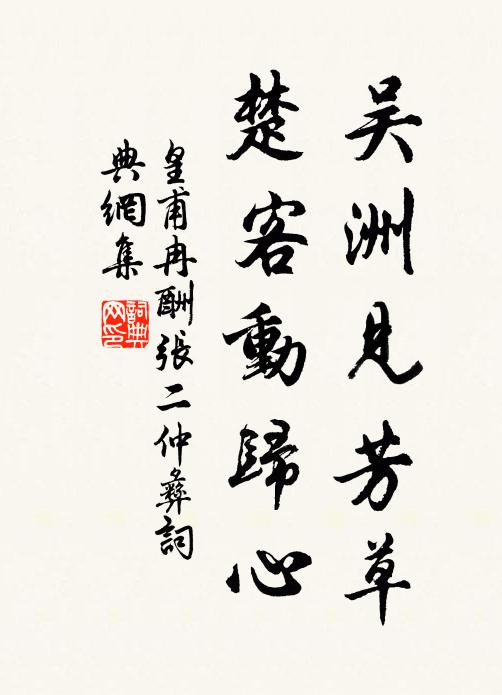 吴洲見芳草
楚客動歸心
皇甫冉酬張二仲彝詞
典網集
詞典網印